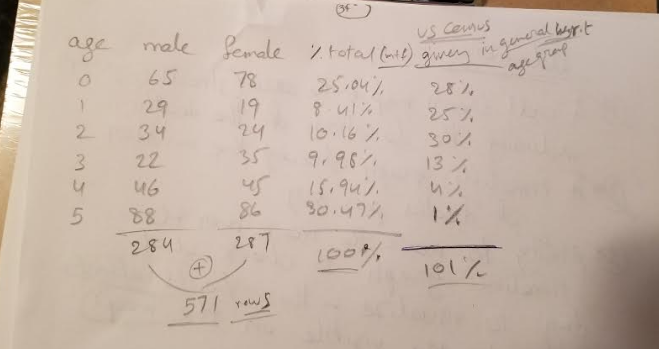 US Census
age male female % total (m+f) giving in general
age group
0 65 78 25.04% 28%
1 29 19 8.41% 25%
2 34 24 10.16% 30%
3 22 35 9.98% 13%
4 46 45 15.94% 4%
5 88 86 30.47% 1%
284 287 100% 101%
+
571 rows